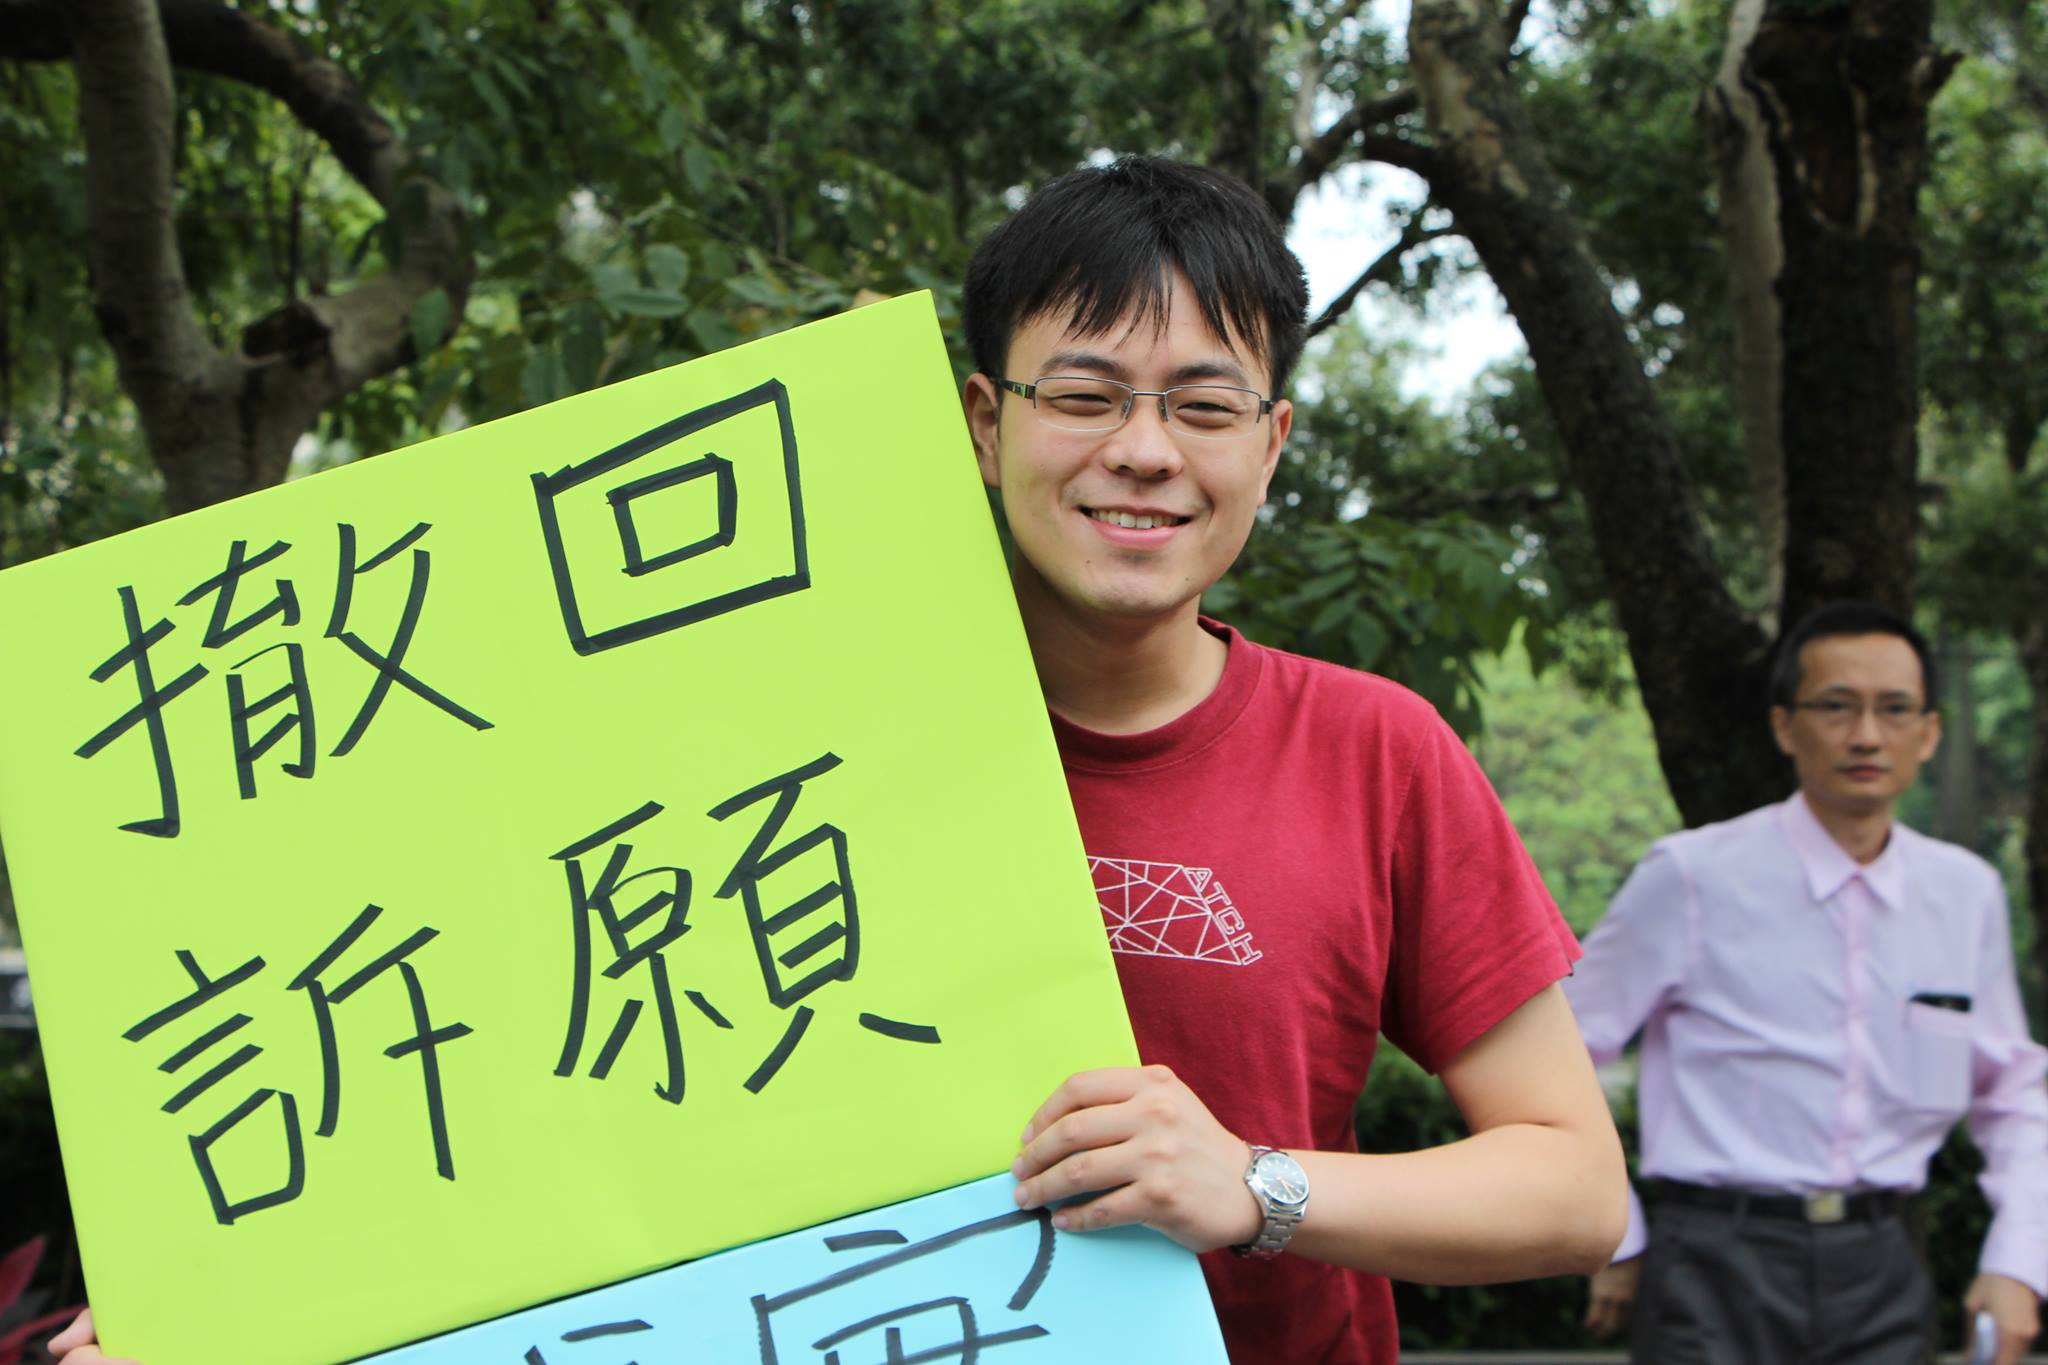 撤回
訴願
ATCH